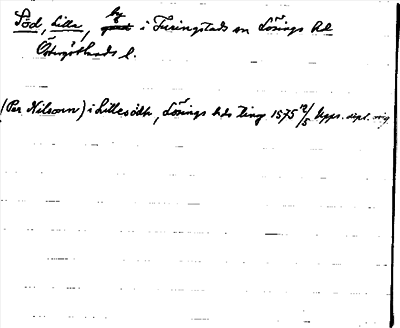 Söd, Lilla, by i Furingstads sn Lösings hd
Östergötlands l.
(Per Nilsson) i Lillesödh, Lösings hds ting 1575 12/5 Upps. dipl.